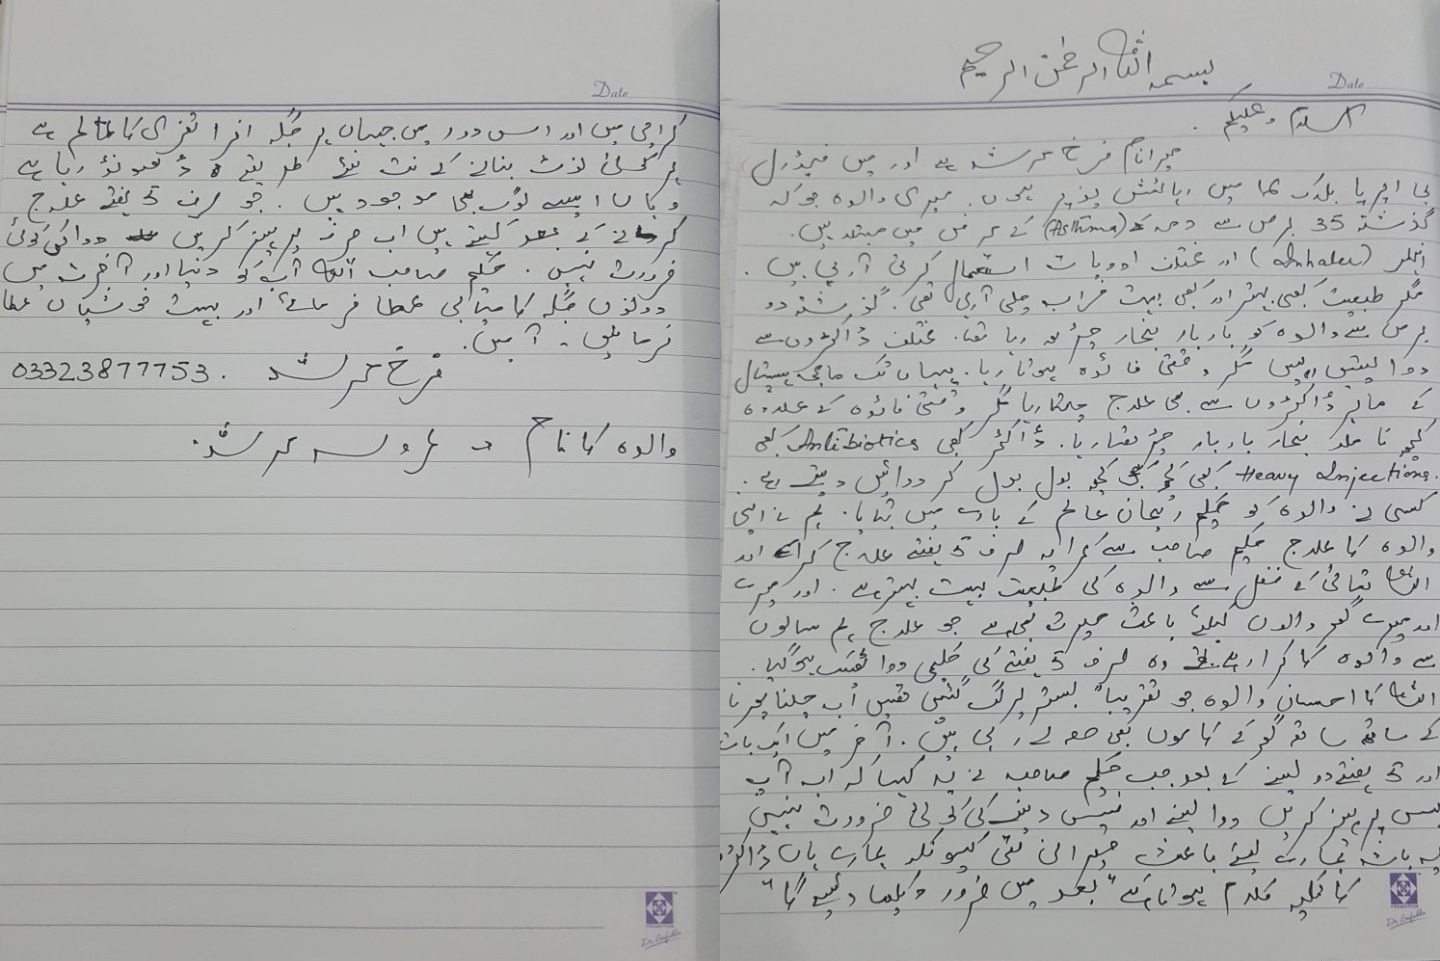 Date
بسمہ اللہ الرحمٰن الرحیم
السلام و علیکم .
میرا نام فرخ عرشد ہے اور میں فیڈرل
بی ایریا بلاک میں رہائش پذیر ہوں. میری والدہ جو کہ
گذشتہ 35 برس سے دمہ (Asthma) کے مرض میں مبتلا ہیں.
انہلر (Inhaler) اور مختلف ادویات استعمال کرتی آرہی ہیں .
مگر طبیعت کبھی بہتر اور کبھی بہت خراب چلی آرہی تھی. گذرشتہ دو
برس سے والدہ کو بار بار بخار چڑھ رہا تھا. مختلف ڈاکٹروں سے
دوا لیتیں رہیں مگر وقتی فائدہ ہوتا رہا. یہاں تک ہسپتال
کے ماہر ڈاکٹروں سے بھی علاج چلتا رہا مگر وقتی فائدہ کے علاوہ
کچھ نا ملا بخار بار بار چڑھتا رہا. ڈاکٹر کبھی Antibiotics کبھی
Heavy Injections. کبھی کچھ کبھی کچھ بول بول کر دوائیں دیتے رہے.
کسی نے والدہ کو حکیم ریحان عالم کے بارے میں بتایا. ہم نے اپنی
والدہ کا علاج حکیم صاحب سے کرایا صرف 5 ہفتے علاج کرا اور
اللہ تعالیٰ کے فضل سے والدہ کی طبیعت بہت بہتر ہے. اور میرے
اور میرے گھر والوں کیلئے باعث حیرت تھی جو علاج ہم سالوں
سے والدہ کا کرا رہے تھے وہ صرف 5 ہفتے کی حکیمی دوا ٹھیک ہوگیا.
اللہ کا احسان والدہ جو تقریباً بستر پر لگ گئیں تھیں اب چلنا پھرنا
کے ساتھ ساتھ گھر کے کاموں بھی حصہ لے رہی ہیں. آخر میں ایک بات
اور 5 ہفتے دو لینے کے بعد جب حکیم صاحب نے یہ کہا کہ اب آپ
بس پرہیز کریں دوا لینے اور فیس دینے کی کوئی ضرورت نہیں
یہ بات ہمارے لیئے باعث حیرانی تھی کیونکہ ہمارے ہاں ڈاکٹر
کا تکیہ کلام ہوتا ہے "بعد میں ضرور دیکھا دیئے گا"
Date
کراچی میں اور اس دور میں جہاں ہر جگہ افرا تفری کا عالم ہے
ہر کوئی نوٹ بنانے کے نت نئے طریقے ڈھونڈ رہا ہے
وہاں ایسے لوگ بھی موجود ہیں. جو صرف 5 ہفتے علاج
کرنے کے بعد کہتے ہیں اب صرف پرہیز کریں دوا کی کوئی
ضرورت نہیں. حکیم صاحب اللہ آپ کو دنیا اور آخرت میں
دونوں جگہ کامیابی عطا فرمائے اور بہت خوشیاں عطا
فرمائیں. آمین.
فرخ عرشد . 03323877753
والدہ کا نام = عروسہ عرشد.